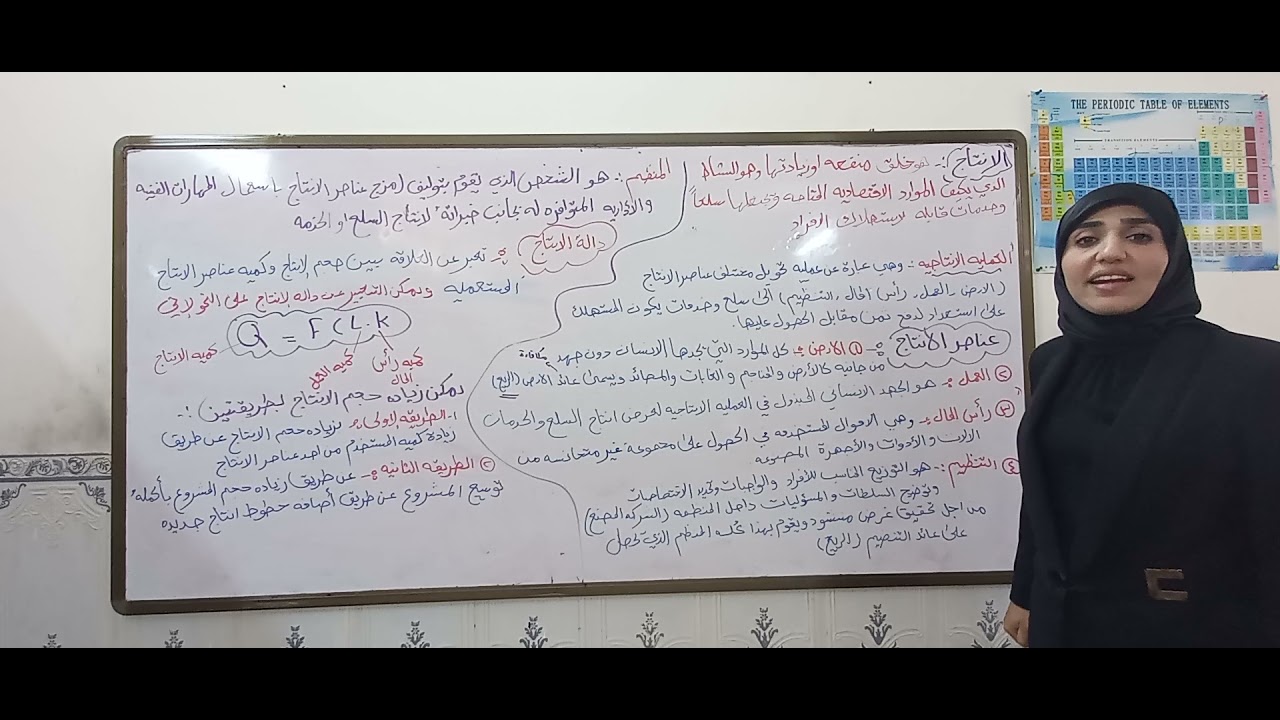 الانتاج :- هو خلق منفعه او زيادتها وهو النشاط
الذي يكيف الموارد الاقتصاديه الخامه ويجعلها سلعاً
وخدمات قابله لاستهلاك الافراد
العمليه الانتاجيه :- وهي عبارة عن عمليه تحويل مختلف عناصر الانتاج
(الارض ـ العمل ـ رأس المال ـ التنظيم) الى سلع وخدمات يكون المستهلك
على استعداد لدفع ثمن مقابل الحصول عليها .
عناصر الأنتاج :- ① الارض :- كل الموارد التي يجدها الانسان دون جهد
من جانبه كالأرض والمناجم والغابات والمصائد ويسمى عائد الارض (الريع)
② العمل :- هو الجهد الانساني المبذول في العمليه الانتاجيه لغرض انتاج السلع والخدمات
③ رأس المال :- وهي الاموال المستخدمه في الحصول على مجموعه غير متجانسه من
الالات والادوات والأجهزة المصنوعه
④ التنظيم :- هو التوزيع المناسب للأفراد والواجبات وتحديد الاختصاصات
وتوضيح السلطات والمسؤليات داخل المنظمه (الشركه المصنع)
من اجل تحقيق غرض منشود ويقوم بهذا كله المنظم الذي يحصل
على عائد التنضيم (الربح)
المنظم :- هو الشخص الذي يقوم بتوليف (مزج عناصر الانتاج باستعمال المهارات الفنيه
والأداريه المتوافره له بجانب خبراته لانتاج السلع او الخدمه
دالة الانتاج :- تعبر عن العلاقه بين حجم لإنتاج وكميه عناصر الانتاج
المستعمليه ويمكن التعبير عن داله لإنتاج على النحو لاتي
Q = F (L . K
كميه الانتاج
كميه العمل
كميه رأس المال
يمكن زياده حجم الانتاج بطريقتين :-
١- الطريقه لاولى :- بزياده حجم الانتاج عن طريق
زيادة كميه المستخدم من احد عناصر الانتاج
② الطريقه الثانيه :- عن طريق زياده حجم المشروع بأكمله
توسيع المشروع عن طريق أضافه خطوط انتاج جديده
THE PERIODIC TABLE OF ELEMENTS